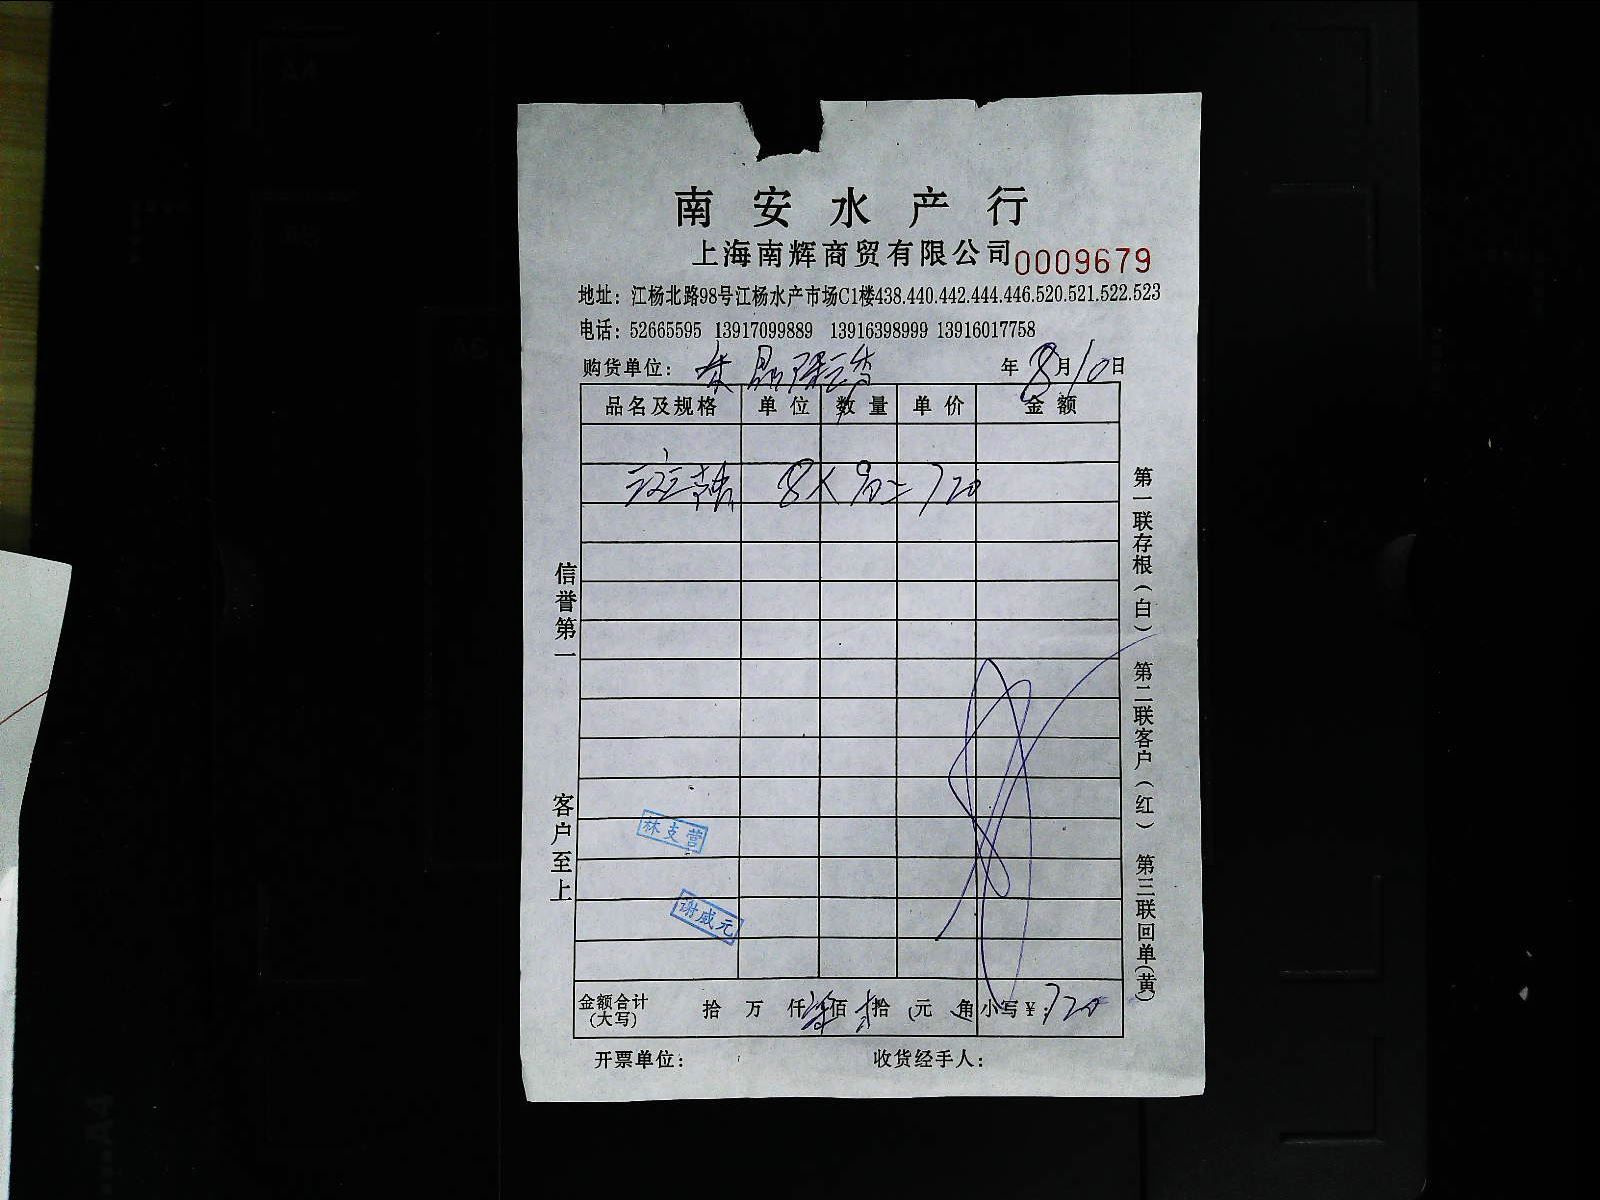 南安水产行
上海南辉商贸有限公司 0009679
地址：江杨北路98号江杨水产市场C1楼438.440.442.444.446.520.521.522.523
电话：52665595 13917099889 13916398999 13916017758
购货单位： 年8月10日
品名及规格 单位 数量 单价 金额
8×90=720
信誉第一 客户至上
第一联存根（白） 第二联客户（红） 第三联回单（黄）
林支营
谢威元
金额合计(大写) 拾 万 仟 柒佰 拾 元 角 小写￥：720
开票单位： 收货经手人：